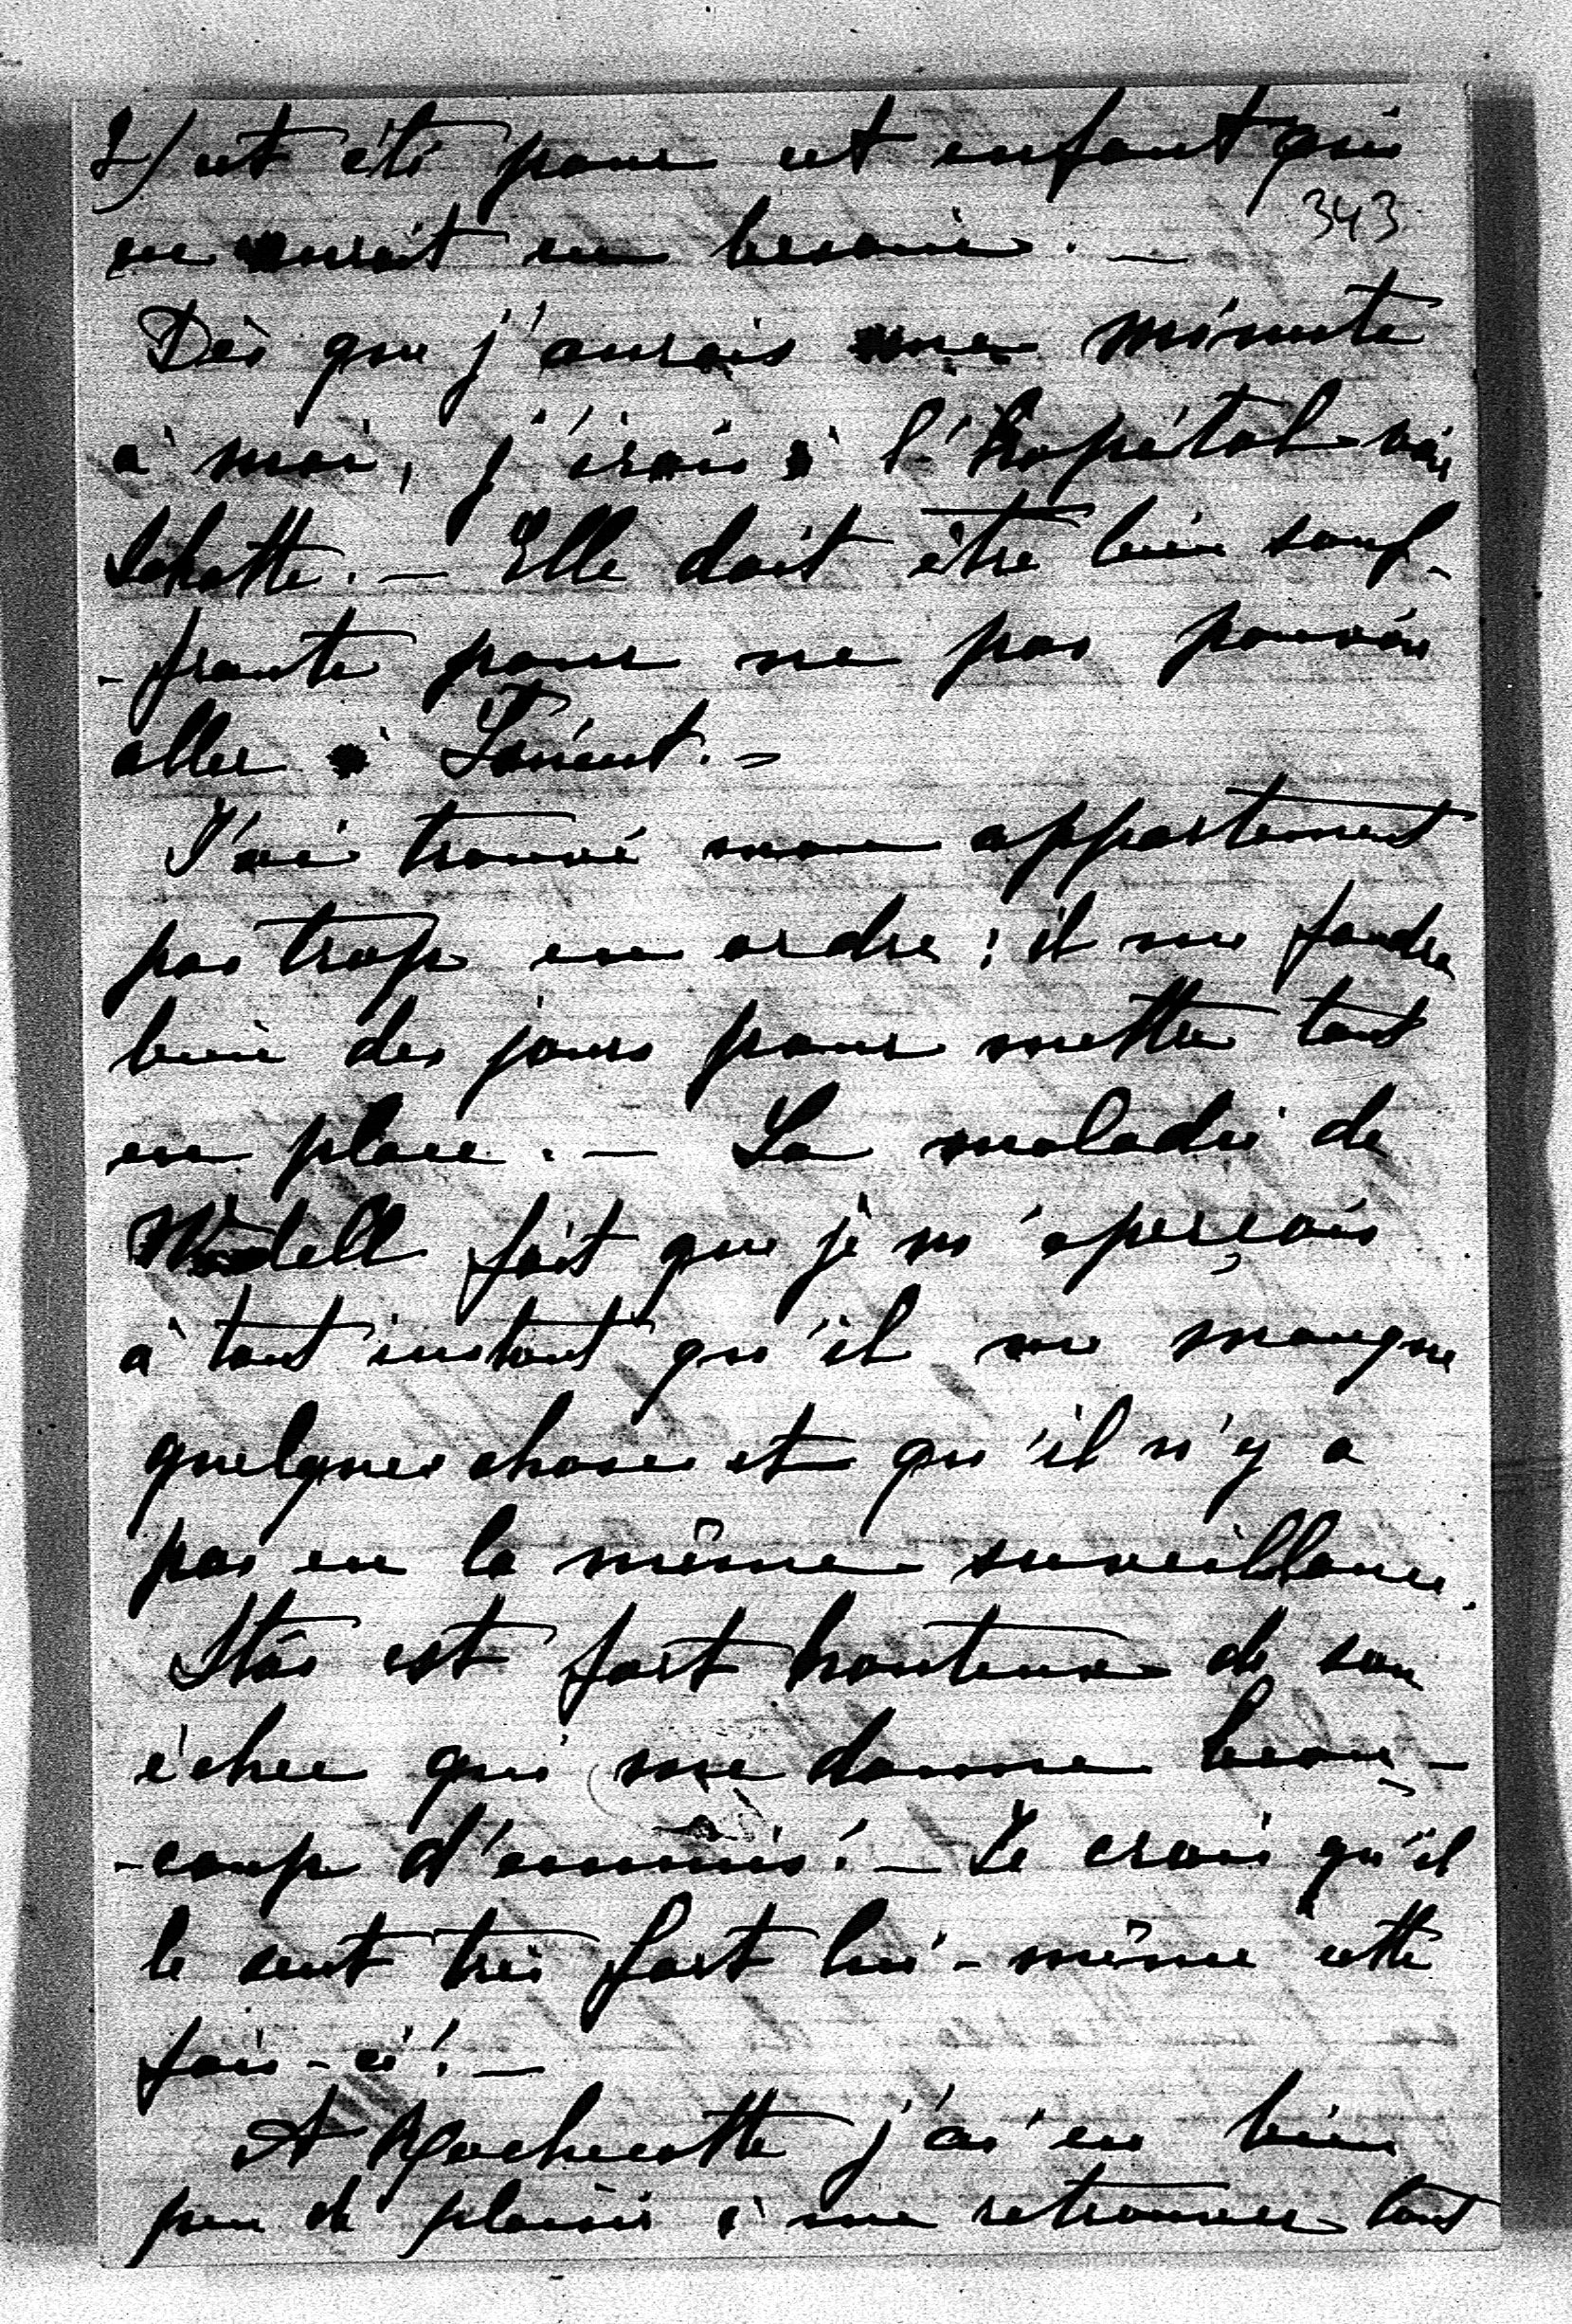 2/ cet été pour cet enfant qui
343
en aurait eu besoin. —
Dès que j'aurais une minute
à moi, j'irais à l'hôpital voir
Lolotte. — Elle doit être bien souf-
-frante pour ne pas pouvoir
aller à Lorient. —
J'ai trouvé mon appartement
pas trop en ordre ; il me faudra
bien des jours pour mettre tout
en place. — La maladie de
fait que je m'aperçois
à tout instant qu'il me manque
quelque chose et qu'il n'y a
pas eu la même surveillance.
Stas est fort honteux de son
échec qui me donne beau-
-coup d'ennuis ! — Je crois qu'il
le sent très fort lui-même cette
fois-ci ! —
A Rochecotte j'ai eu bien
peu de plaisir à me retrouver tout